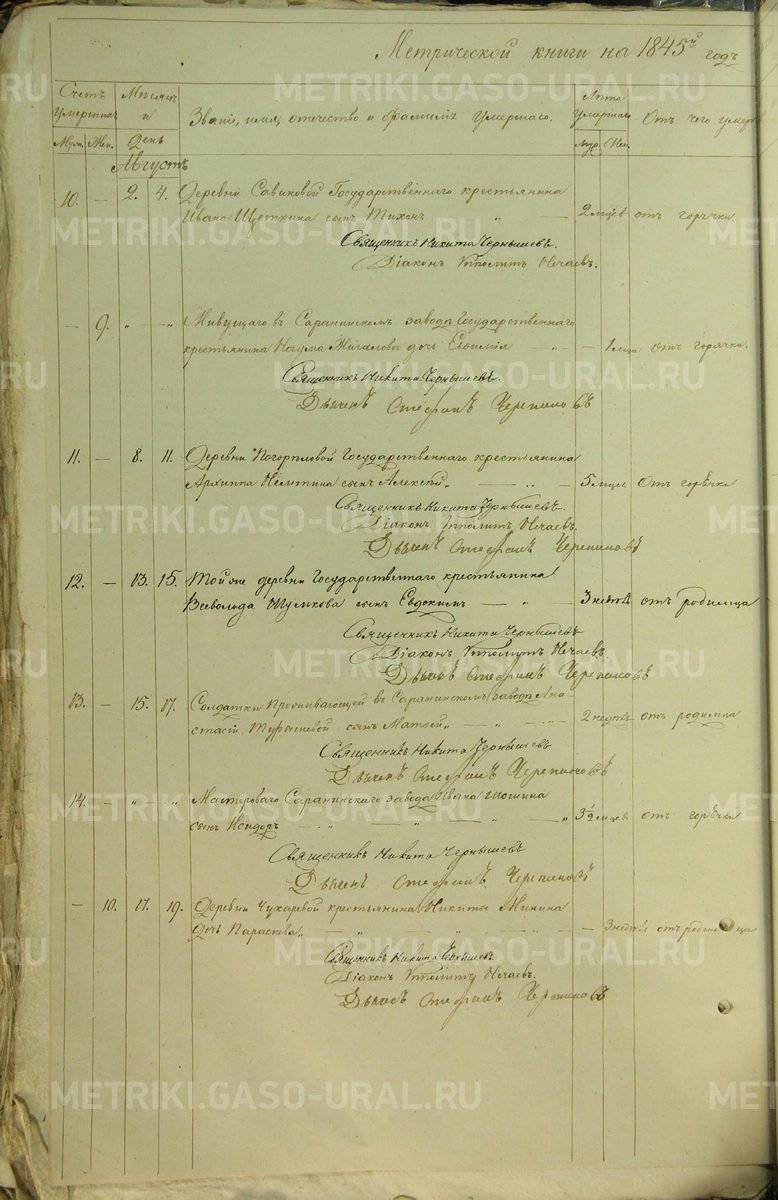 Метрической книги на 1845й годъ
Счетъ умершихъ
Муж. Жен.
Мѣсяцъ и День
Званіе, имя, отечество и фамилія умершаго.
Лѣта умершаго
Муж. Жен.
Отъ чего умеръ
Августъ
10. — 2. 4. Деревни Савиновой Государственнаго крестьянина
Ивана Щеткина сынъ Тихонъ „ — 2 мцев отъ горячки
Священникъ Никита Чернышевъ.
Діаконъ Ипполитъ Нечаевъ.
— 9. „ — „ Живущаго въ Саранинскомъ заводѣ Государственнаго
крестьянина Наума дочь Евфимія — „ — 1 мца отъ горячки
Священникъ Никита Чернышевъ.
Дьячекъ Стефанъ Черепановъ
11. — 8. 11. Деревни Государственнаго крестьянина
Архиппа сынъ Алексѣй „ — 5 мцев отъ горячки
Священникъ Никита Чернышевъ.
Діаконъ Ипполитъ Нечаевъ.
Дьячекъ Стефанъ Черепановъ
12. — 13. 15. Той же деревни Государственнаго крестьянина
Всеволода Шумкова сынъ Евдокимъ — „ — 3 недѣль отъ родимца
Священникъ Никита Чернышевъ
Діаконъ Ипполитъ Нечаевъ
Дьячекъ Стефанъ Черепановъ
13. — 15. 17. Солдатки Проживающей въ Саранинскомъ заводѣ Ана
стасіи сынъ Матвѣй „ — „ — 2 недѣль отъ родимца
Священникъ Никита Чернышевъ
Дьячекъ Стефанъ Черепановъ
14. — „ — „ Мастероваго Саранинскаго завода Шошина
сынъ Исидоръ — „ „ „ 3½ мцев отъ горячки
Священникъ Никита Чернышевъ
Дьячекъ Стефанъ Черепановъ
— 10. 17. 19. Деревни Чухаревой крестьянина Никиты Минина
дочь Параскева „ — „ „ — 3 недѣль отъ родимца
Священникъ Никита Чернышевъ
Діаконъ Ипполитъ Нечаевъ.
Дьячекъ Стефанъ Черепановъ
METRIKI.GASO-URAL.RU